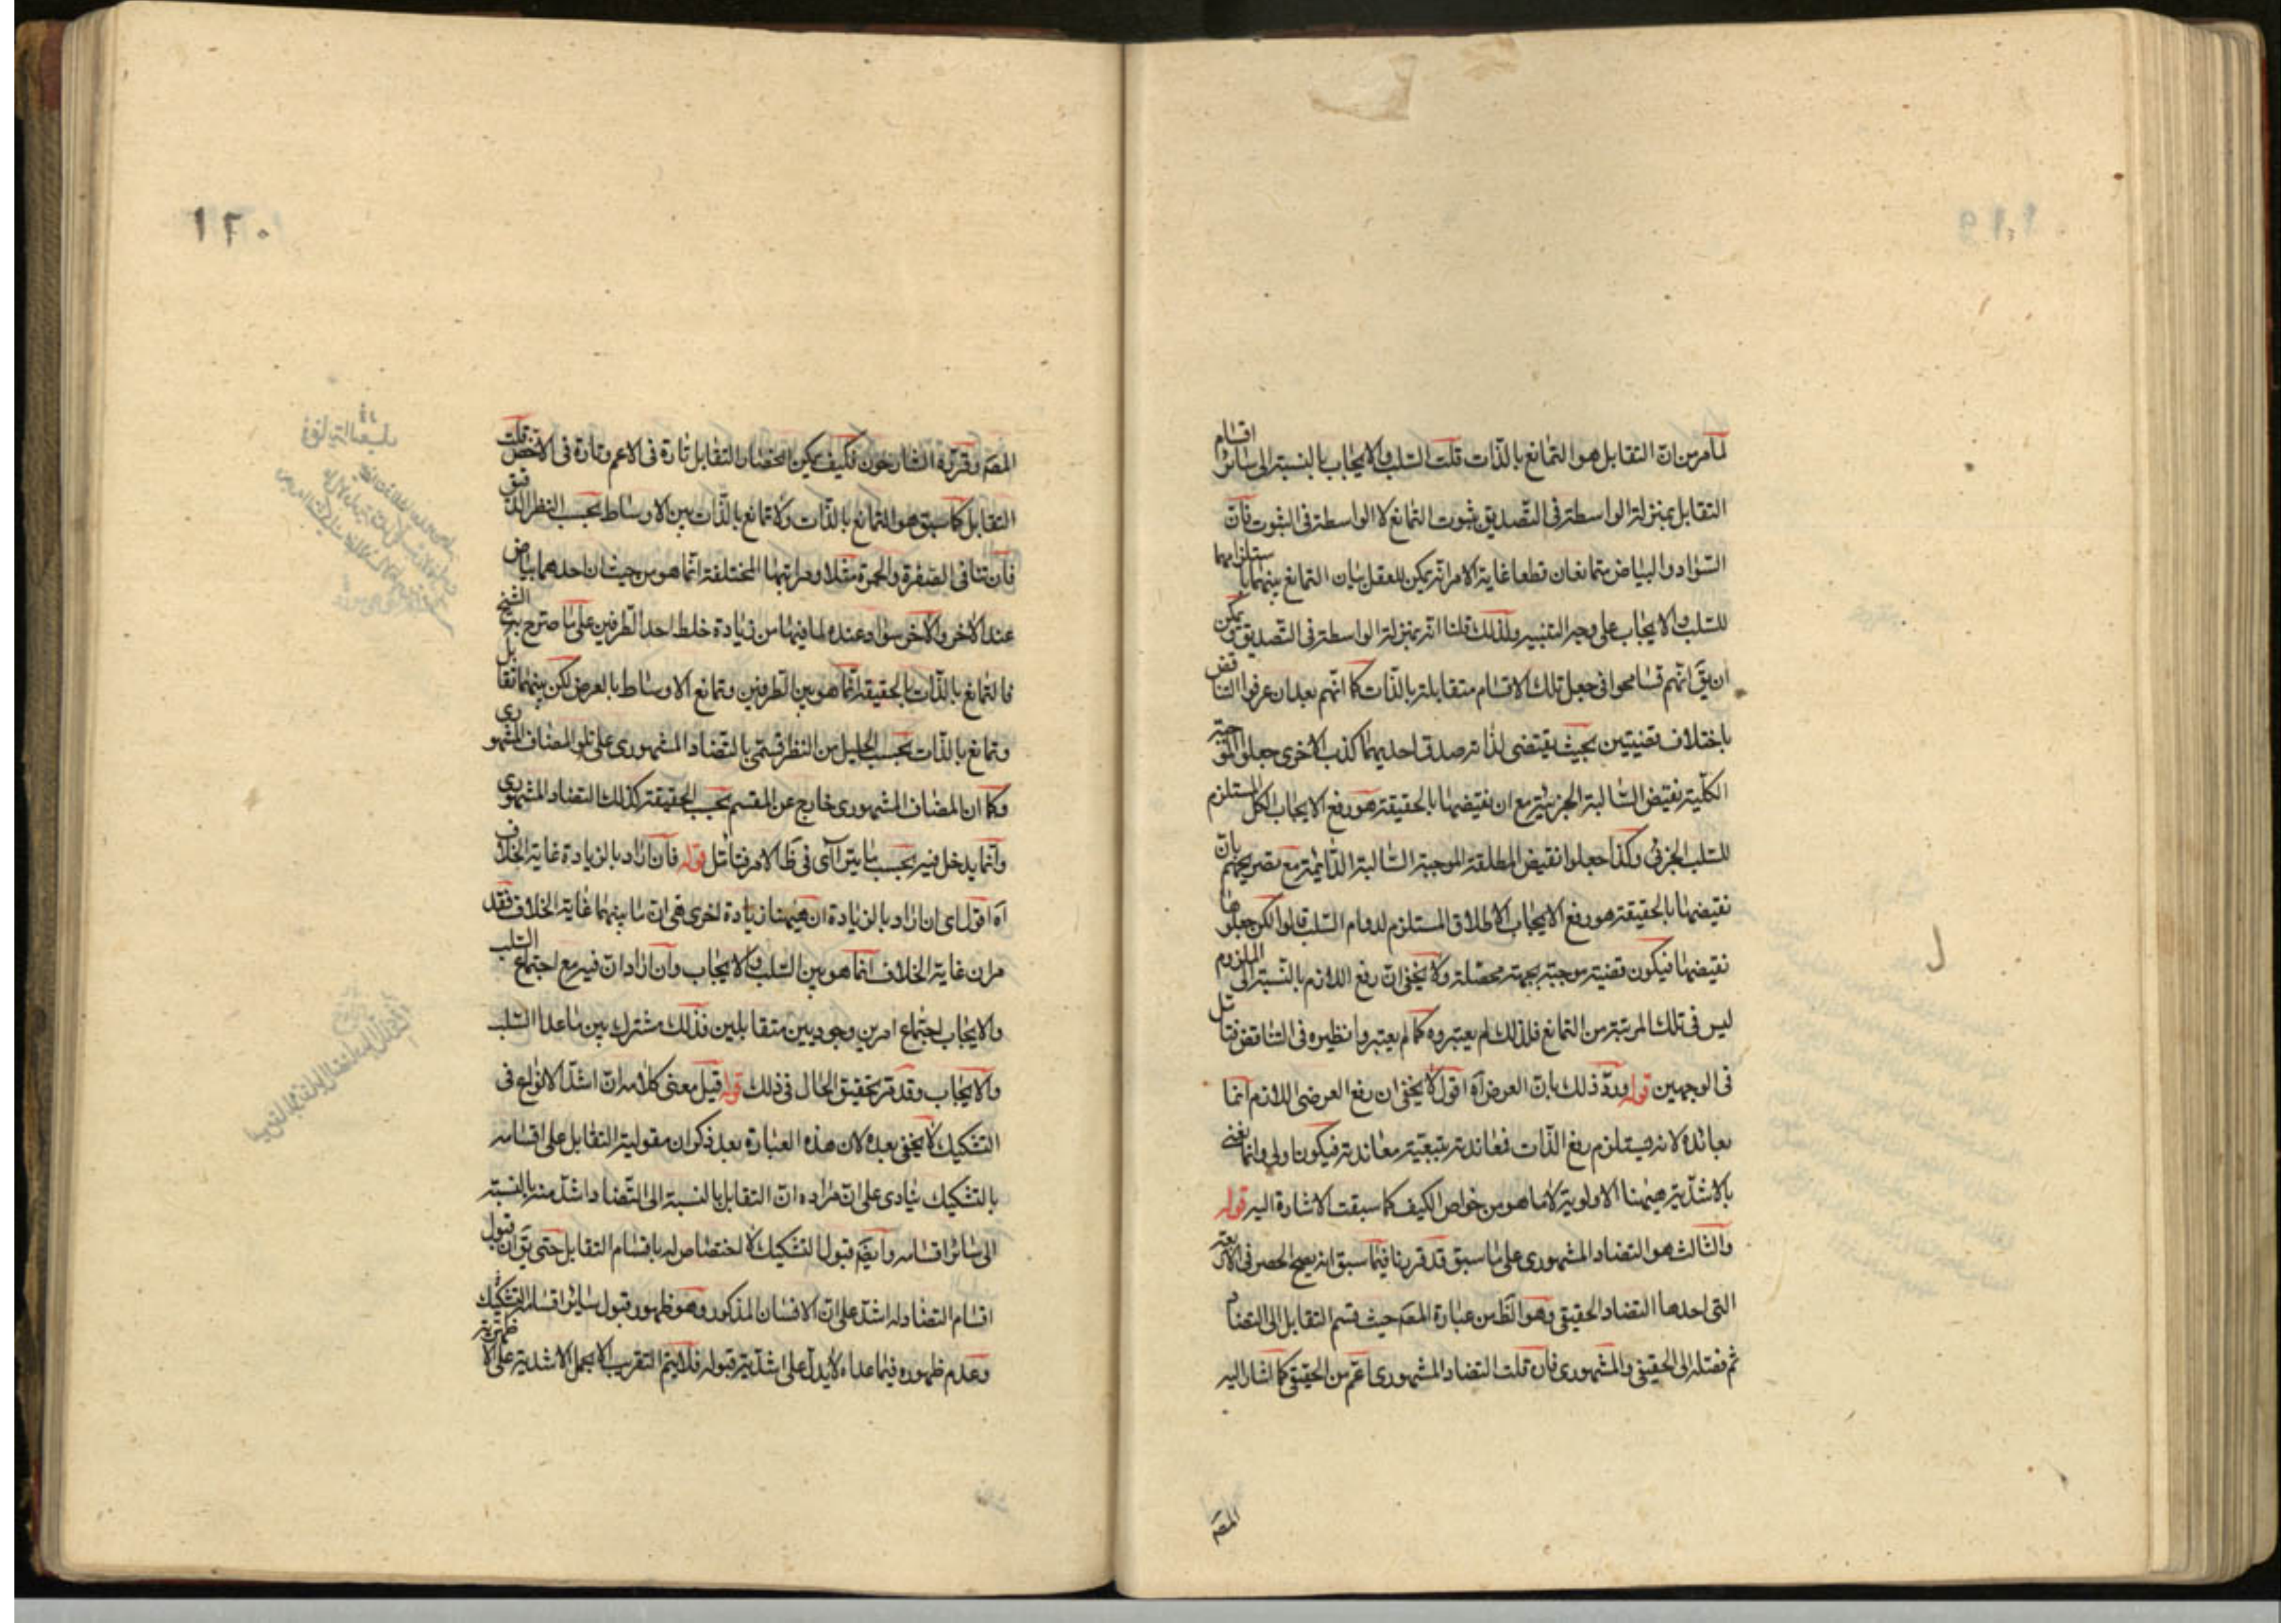 لما مر من ان التقابل هو التمانع بالذات قلت السلب والايجاب بالنسبة الى سائر اقسام
التقابل بمنزلة الواسطة فى التصديق بثبوت التمانع لا الواسطة فى الثبوت فان
السواد والبياض متمانعان قطعا غاية الامر انه يمكن للعقل بيان التمانع بينهما باستلزامهما
للسلب والايجاب على وجه التنبيه ولذلك قلنا انه بمنزلة الواسطة فى التصديق ويمكن
ان يقَ انهم تسامحوا فى جعل تلك الاقسام متقابلة بالذات كما انهم بعد ان عرفوا التناقض
باختلاف قضيتين بحيث يقتضى لذاته صدق احديهما كذب الاخرى جعلوا الموجبة
الكلية نقيض السالبة الجزئية مع ان نقيضها بالحقيقة هو رفع الايجاب الكل المستلزم
للسلب الجزئى وكذا جعلوا نقيض المطلقة الموجبة السالبة الدائمة مع تصريحهم بان
نقيضها بالحقيقة هو رفع الايجاب الاطلاق المستلزم لدوام السلب قالوا لكن جعلوها
نقيضها فيكون قضية موجبة بجهة محصلة ولا يخفى ان رفع اللازم بالنسبة الى الملزوم
ليس فى تلك المرتبة من التمانع فلذلك لم يعتبروه كما لم يعتبروا نظيره فى التناقض فتامل
فى الوجهين قوله ورد ذلك بان العرض آه اقول لا يخفى ان رفع العرضى اللازم انما
يعانده لانه يستلزم رفع الذات فمعاندته بتبعية معاندته فيكون اولى وانما نعنى
بالاشدية هيهنا الاولوية لا ما هو من خواص الكيف كما سبقت الاشارة اليه قوله
والثالث هو التضاد المشهورى على ما سبق قد قررنا فيما سبق انه يصح الحصر فى الاربعة
التى احدها التضاد الحقيقى وهو الظ من عبارة المصَ حيث قسم التقابل الى التضاد
ثم فصله الى الحقيقى والمشهورى فان قلت التضاد المشهورى اعم من الحقيقى كما اشار اليه
المصَ
١٢٠
المصَ وقرره الشارحون فكيف يمكن انحصار التقابل تارة فى الاعم وتارة فى الاخص قلت
التقابل كما سبق هو التمانع بالذات ولا تمانع بالذات بين الاوساط بحسب النظر الدقيق
فان تنافى الصفرة والحمرة مثلا ومراتبهما المختلفة انما هو من حيث ان احدهما بياض
عند الاخر والاخر سواد عنده لما فيهما من زيادة خلط احد الطرفين على ما صرح به الشيخ
فالتمانع بالذات بالحقيقة انما هو بين الطرفين وتمانع الاوساط بالعرض لكن بينهما تقابل
وتمانع بالذات بحسب الجليل من النظر فسمى بالتضاد المشهورى على تلو المضاف المشهورى
وكما ان المضاف المشهورى خارج عن المقسم بحسب الحقيقة كذلك التضاد المشهورى
وانما يدخل فيه بحسب ما يتراآى فى ظ الامر فتامل قوله فان اراد بالزيادة غاية الخلاف
آه اقول اى ان اراد بالزيادة ان هيهنا زيادة اخرى هى ان ما بينهما غاية الخلاف فقد
مر ان غاية الخلاف انما هو بين السلب والايجاب وان اراد ان فيه مع اجتماع السلب
والايجاب اجتماع امرين وجوديين متقابلين فذلك مشترك بين ما عدا السلب
والايجاب وقد مر تحقيق الحال فى ذلك قوله قيل معنى كلامه ان اشد الانواع فى
التشكيك لا يخفى بعده لان هذه العبارة بعد ذكر ان مقولية التقابل على اقسامه
بالتشكيك ينادى على ان مراده ان التقابل بالنسبة الى التضاد اشد منه بالنسبة
الى سائر اقسامه وايضَ قبول التشكيك لا اختصاص له باقسام التقابل حتى يقَ ان قبول
اقسام التضاد له اشد على ان الافسان المذكور وهو ظهور قبول سائر اقسامه التشكيك
وعدم ظهوره فيما عداه لا يدل على اشدية قبوله فلا يتم التقريب الا بحمل الاشدية على الاظهرية